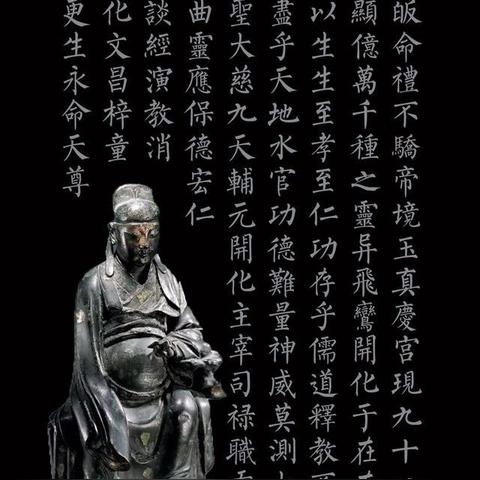 皈命禮不驕帝境玉真慶宮現九十
顯億萬千種之靈异飛鸞開化于在
以生生至孝至仁功存乎儒道釋教
盡乎天地水官功德難量神威莫測
聖大慈九天輔元開化主宰司禄職
曲靈應保德宏仁
談經演教消
化文昌梓童
更生永命天尊